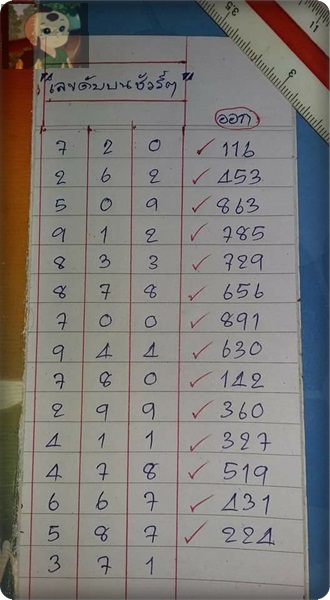 "เลขดับบนชัวร์ๆ"
ออก
7 2 0 ✓ 116
2 6 2 ✓ 453
5 0 9 ✓ 863
9 1 2 ✓ 785
8 3 3 ✓ 729
8 7 8 ✓ 656
7 0 0 ✓ 891
9 4 4 ✓ 630
7 8 0 ✓ 142
2 9 9 ✓ 360
4 1 1 ✓ 327
4 7 8 ✓ 519
6 6 7 ✓ 431
5 8 7 ✓ 224
3 7 1